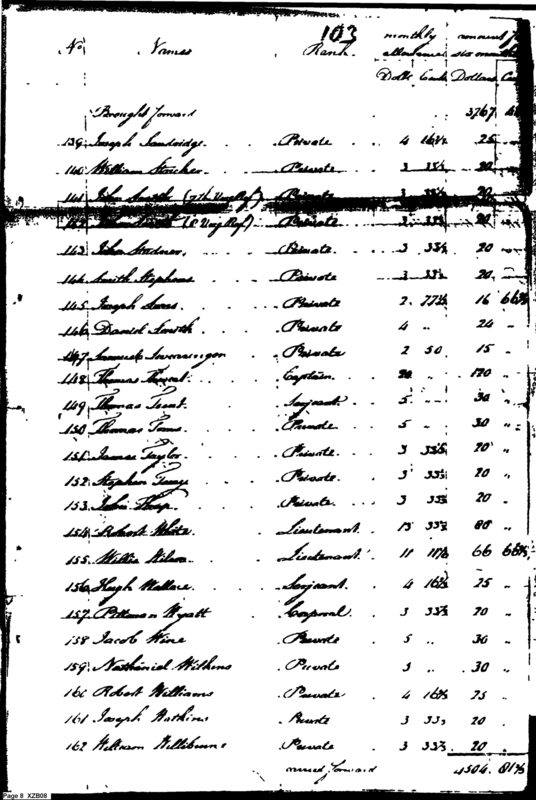 103
No Names Rank monthly allowance amount for six months
Dolls Cents Dollars Ce
Brought forward 3767
139 Joseph Sandridge Private 4 16 2/3 25 "
140 William Stricker Private 3 33 1/3 20
141 John Smith (7th Reg) Private 3 33 1/3 20
142 Private 3 33 1/3 20 "
143 John Private 3 33 1/3 20 "
144 Smith Stephens Private 3 33 1/3 20 "
145 Joseph Private 2 77 1/2 16 66 2/3
146 Daniel Smith Private 4 " 24 "
147 Samuel Private 2 50 15 "
148 Thomas Captain 20 " 120 "
149 Thomas Trent Serjeant 5 " 30 "
150 Thomas Toms Private 5 " 30 "
151 James Taylor Private 3 33 1/3 20 "
152 Stephen Terry Private 3 33 1/3 20 "
153 John Private 3 33 1/3 20 "
154 Robert White Lieutenant 13 33 1/3 80 "
155 Willis Wilson Lieutenant 11 11 1/9 66 66 2/3
156 Hugh Wallace Serjeant 4 16 2/3 25 "
157 Pittman Wyatt Corporal 3 33 1/3 20 "
158 Jacob Wine Private 5 " 30 "
159 Nathanial Wilkins Private 5 " 30 "
160 Robert Williams Private 4 16 2/3 25 "
161 Joseph Watkins Private 3 33 1/3 20 "
162 Private 3 33 1/3 20 "
carried forward 4504
Page 8 XZB08